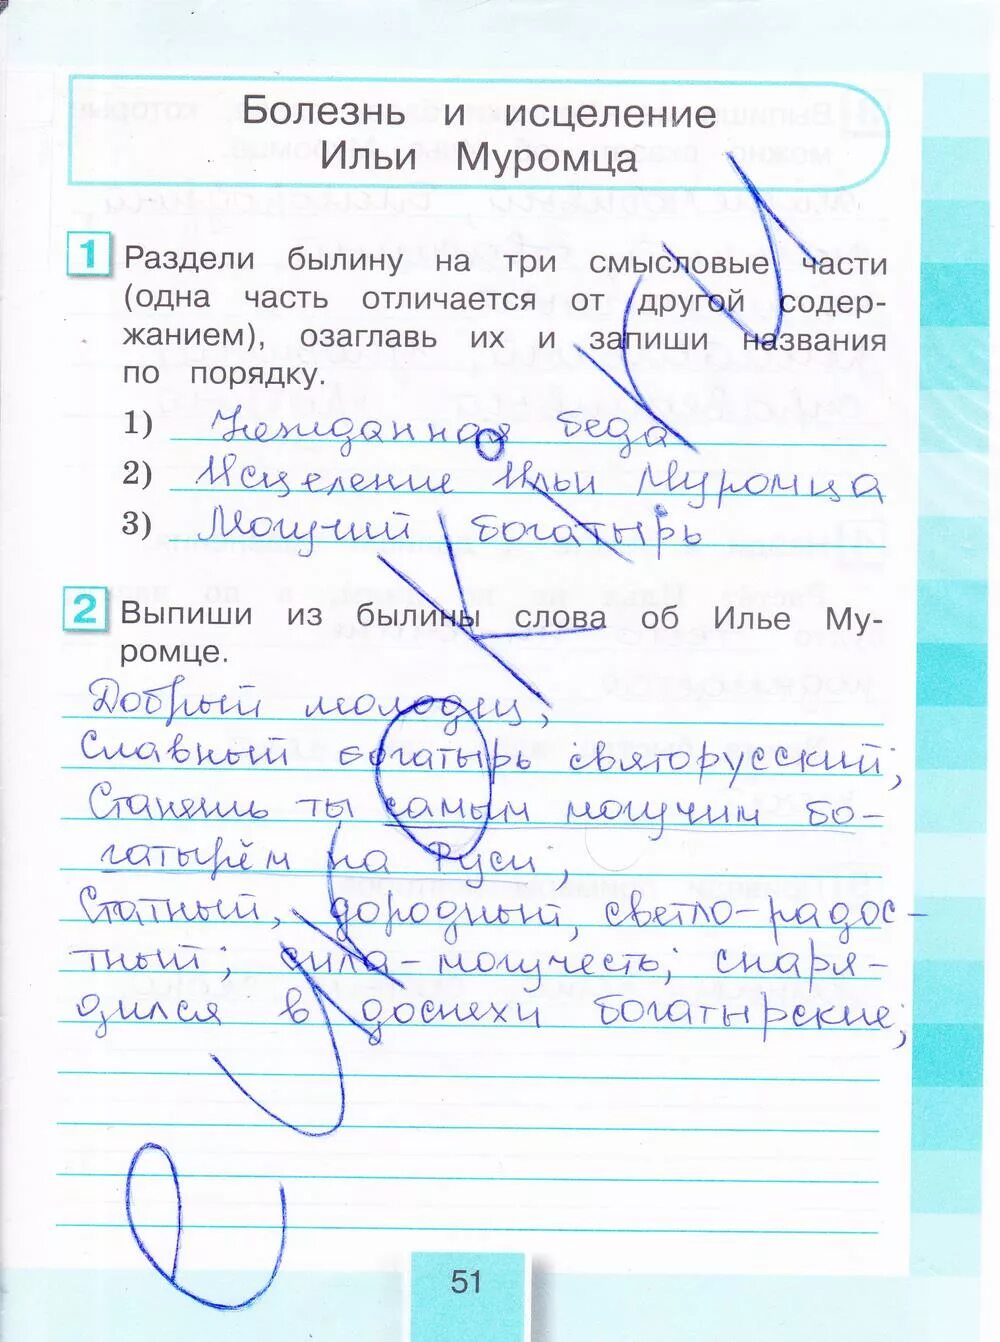 Болезнь и исцеление
Ильи Муромца
1 Раздели былину на три смысловые части
(одна часть отличается от другой содер-
жанием), озаглавь их и запиши названия
по порядку.
1) Нежданная беда
2) Исцеление Ильи Муромца
3) Могучий богатырь
2 Выпиши из былины слова об Илье Му-
ромце.
Добрый молодец;
Славный богатырь святорусский;
Станешь ты самым могучим бо-
гатырём на Руси;
Статный, дородный, светло-радос-
тный; сила-могучесть; снаря-
дился в доспехи богатырские;
51